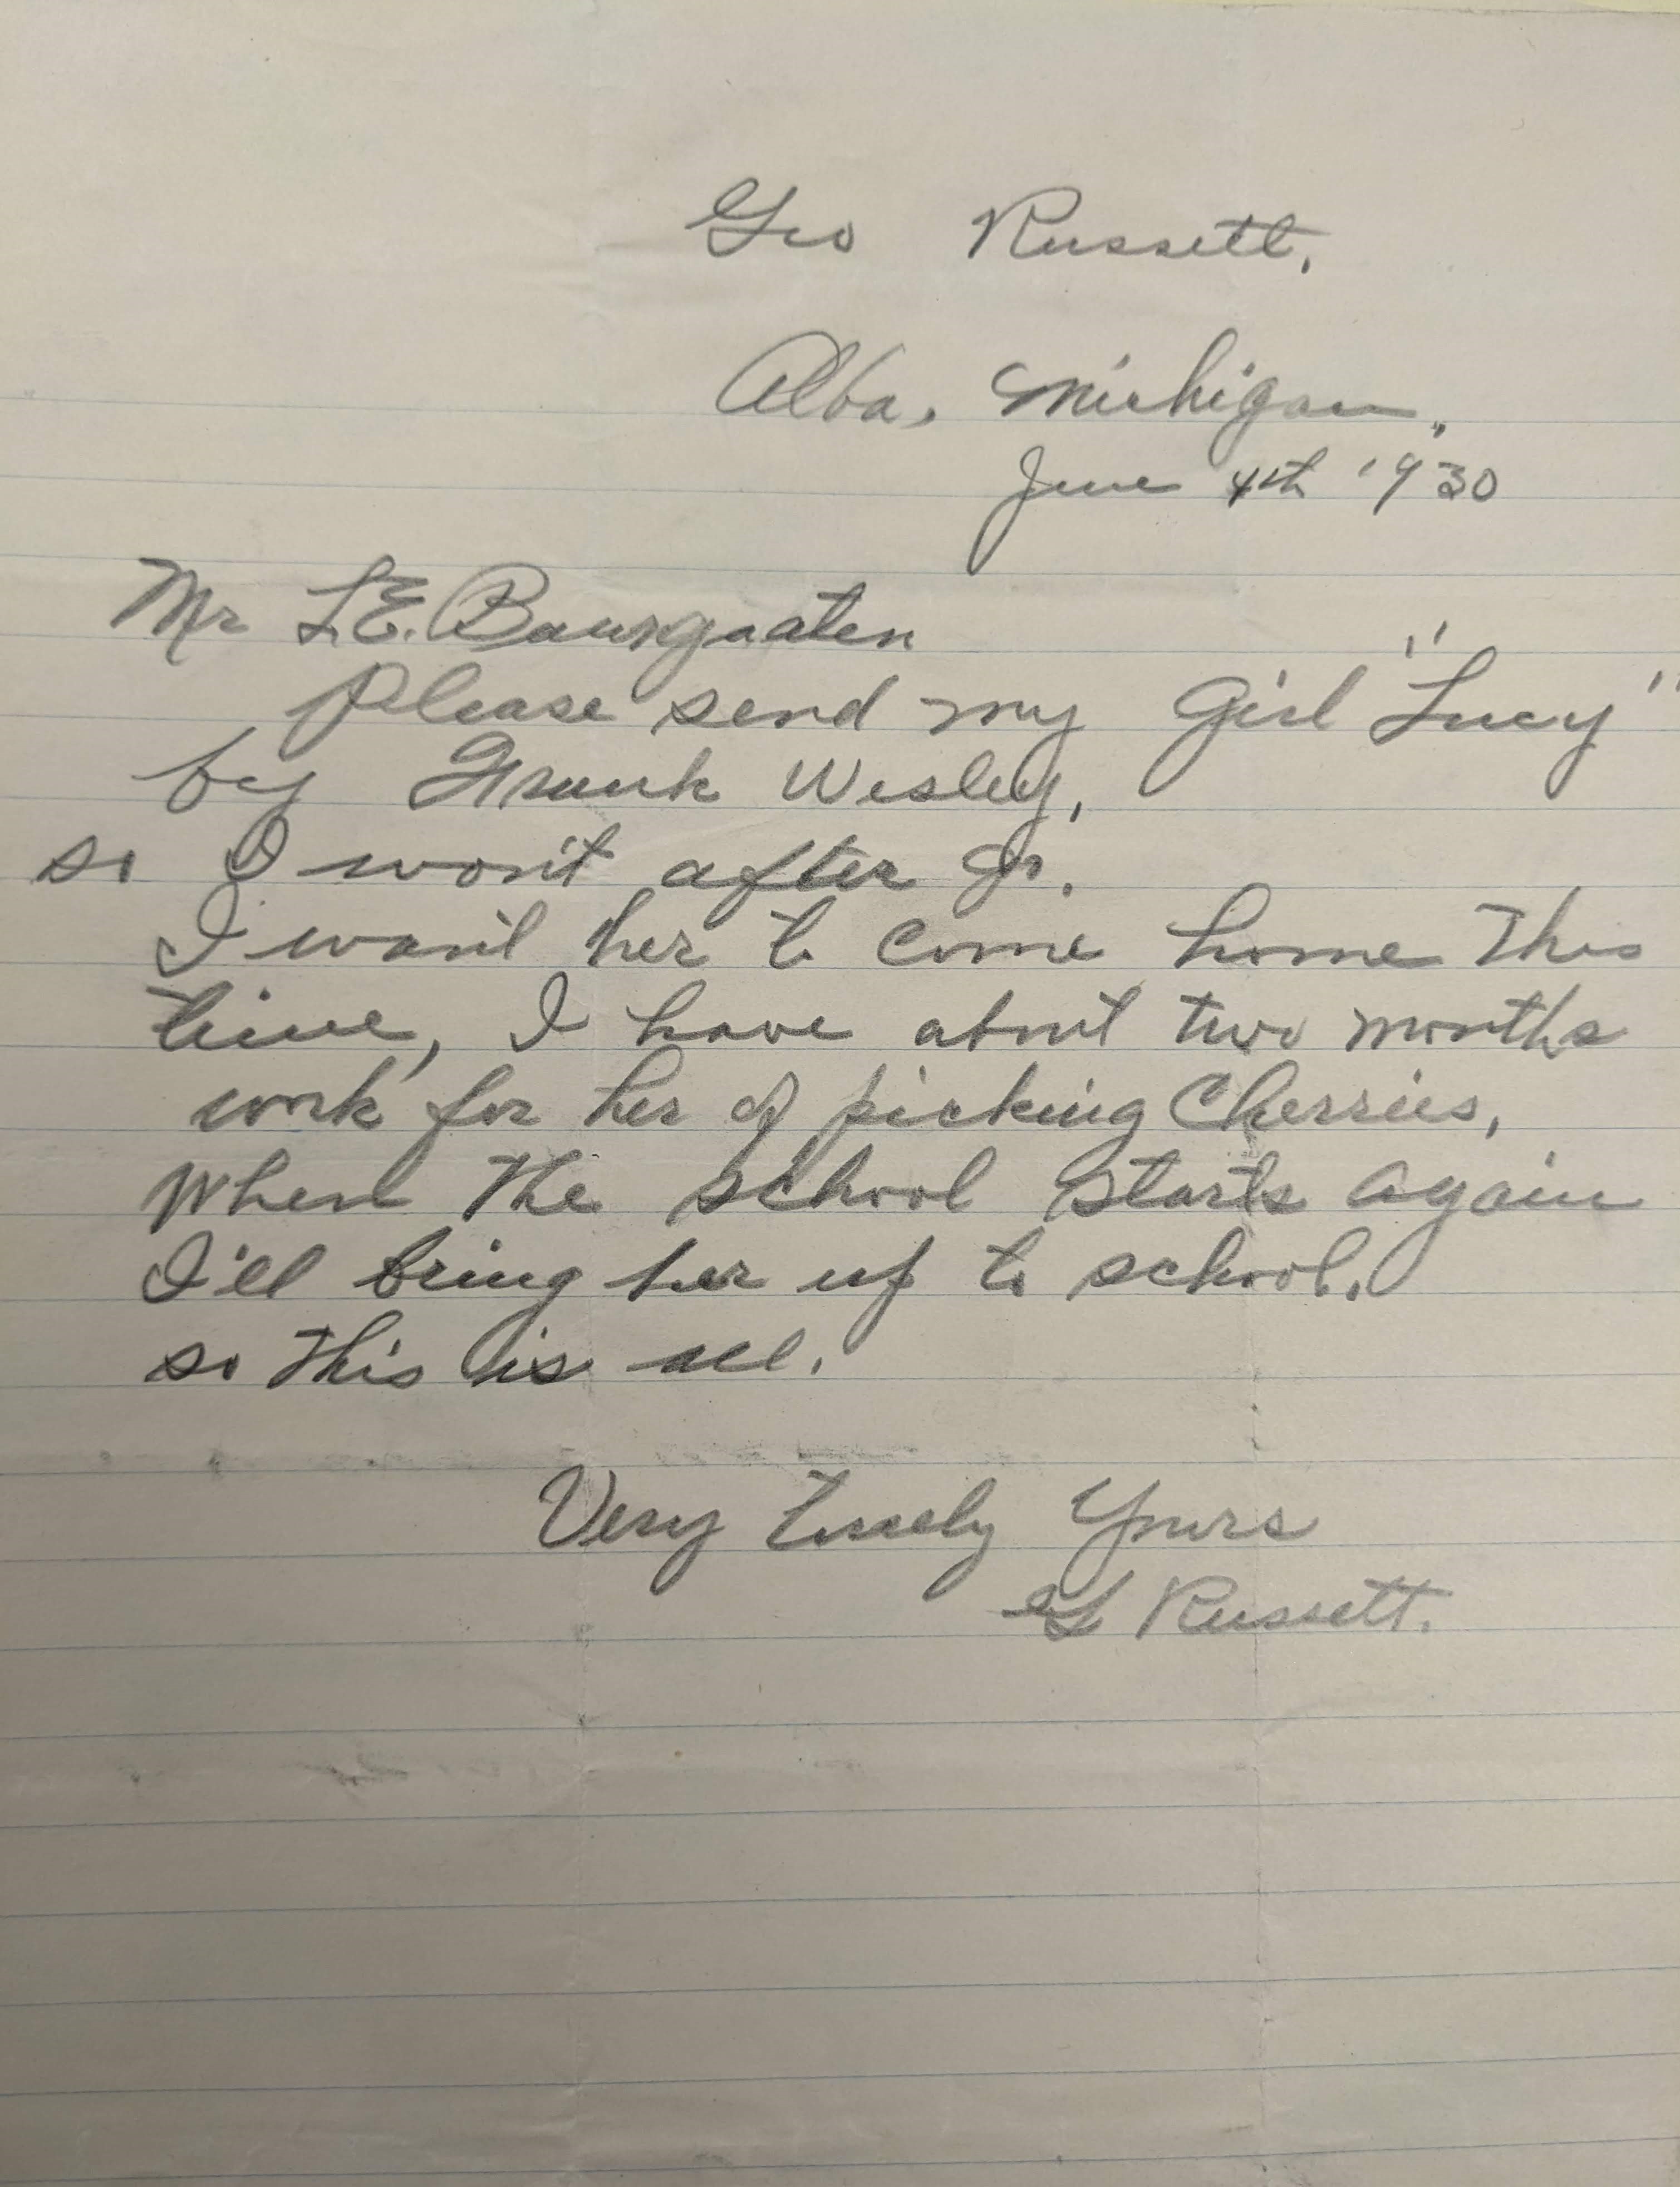 Geo Russett.
Alba, Michigan,
June 4th 1930
Mr L.E. Baurgaaten
Please send my Girl "Lucy"
by Frank Wesley,
so I won't after Jr.
I want her to come home This
time, I have about two months
work for her of picking Cherries,
When The school starts again
I'll bring her up to school.
so This is all.
Very Truely Yours
Russett.